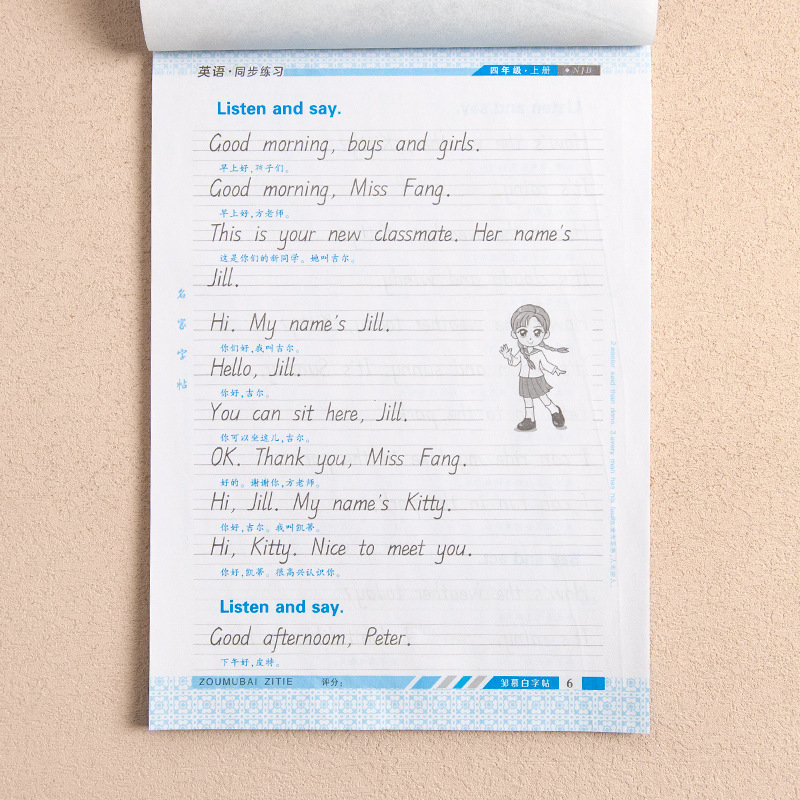 英语·同步练习
四年级·上册
NJB
Listen and say.
Good morning, boys and girls.
早上好,孩子们。
Good morning, Miss Fang.
早上好,方老师。
This is your new classmate. Her name's
这是你们的新同学。她叫吉尔。
Jill.
名家字帖
Hi. My name's Jill.
你们好,我叫吉尔。
Hello, Jill.
你好,吉尔。
You can sit here, Jill.
你可以坐这儿,吉尔。
OK. Thank you, Miss Fang.
好的。谢谢你,方老师。
Hi, Jill. My name's Kitty.
你好,吉尔。我叫凯蒂。
Hi, Kitty. Nice to meet you.
你好,凯蒂。很高兴认识你。
Listen and say.
Good afternoom, Peter.
下午好,皮特。
ZOUMUBAI ZITIE
评分:
邹慕白字帖
6